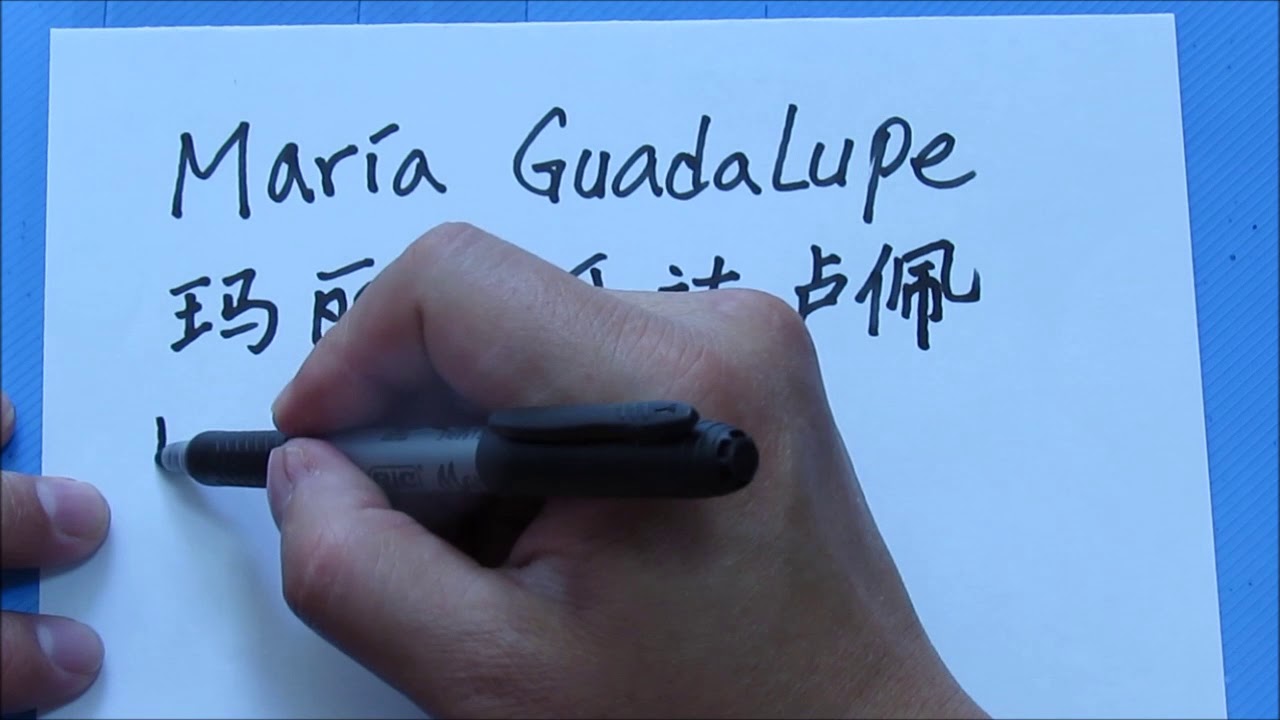 María GuadaLupe
玛丽 达卢佩
BIC